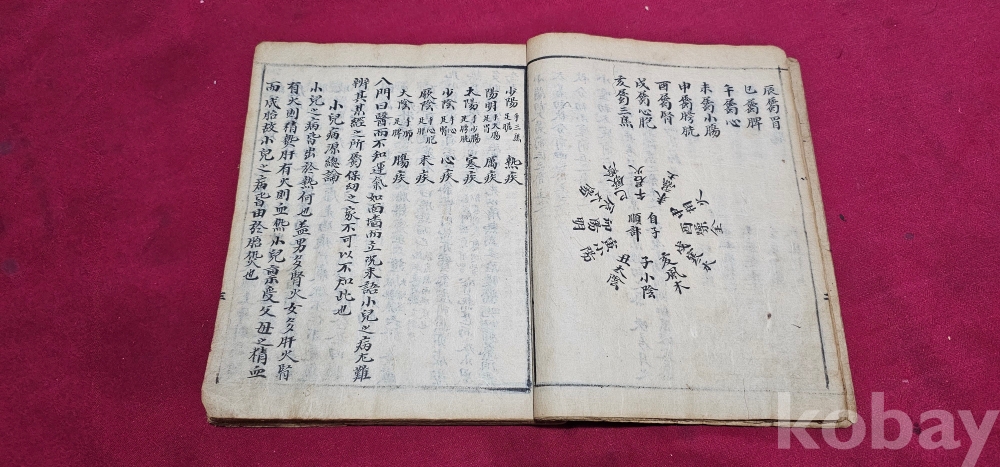 辰屬胃
巳屬脾
午屬心
未屬小腸
申屬膀胱
酉屬腎
戌屬心胞
亥屬三焦
自子
順計
子小陰
丑太陰
亥風木
少陽 手三焦 足胆 熱疾
陽明 手大腸 足胃
太陽 手小腸 足膀胱 寒疾
少陰 手心 足腎 心疾
厥陰 手心胞 足肝 末疾
太陰 手肺 足脾 腸疾
八門曰醫而不知運氣如面墻而立況未語小兒之病尤難
辨其某經之所屬保幼之家不可以不知此也
小兒病源總論
小兒之病皆出於熱何也盖男多腎火女多肝火腎
有火則精熱肝有火則血熱小兒稟受父母之精血
而成胎故小兒之病皆由於胎熱也
kobay